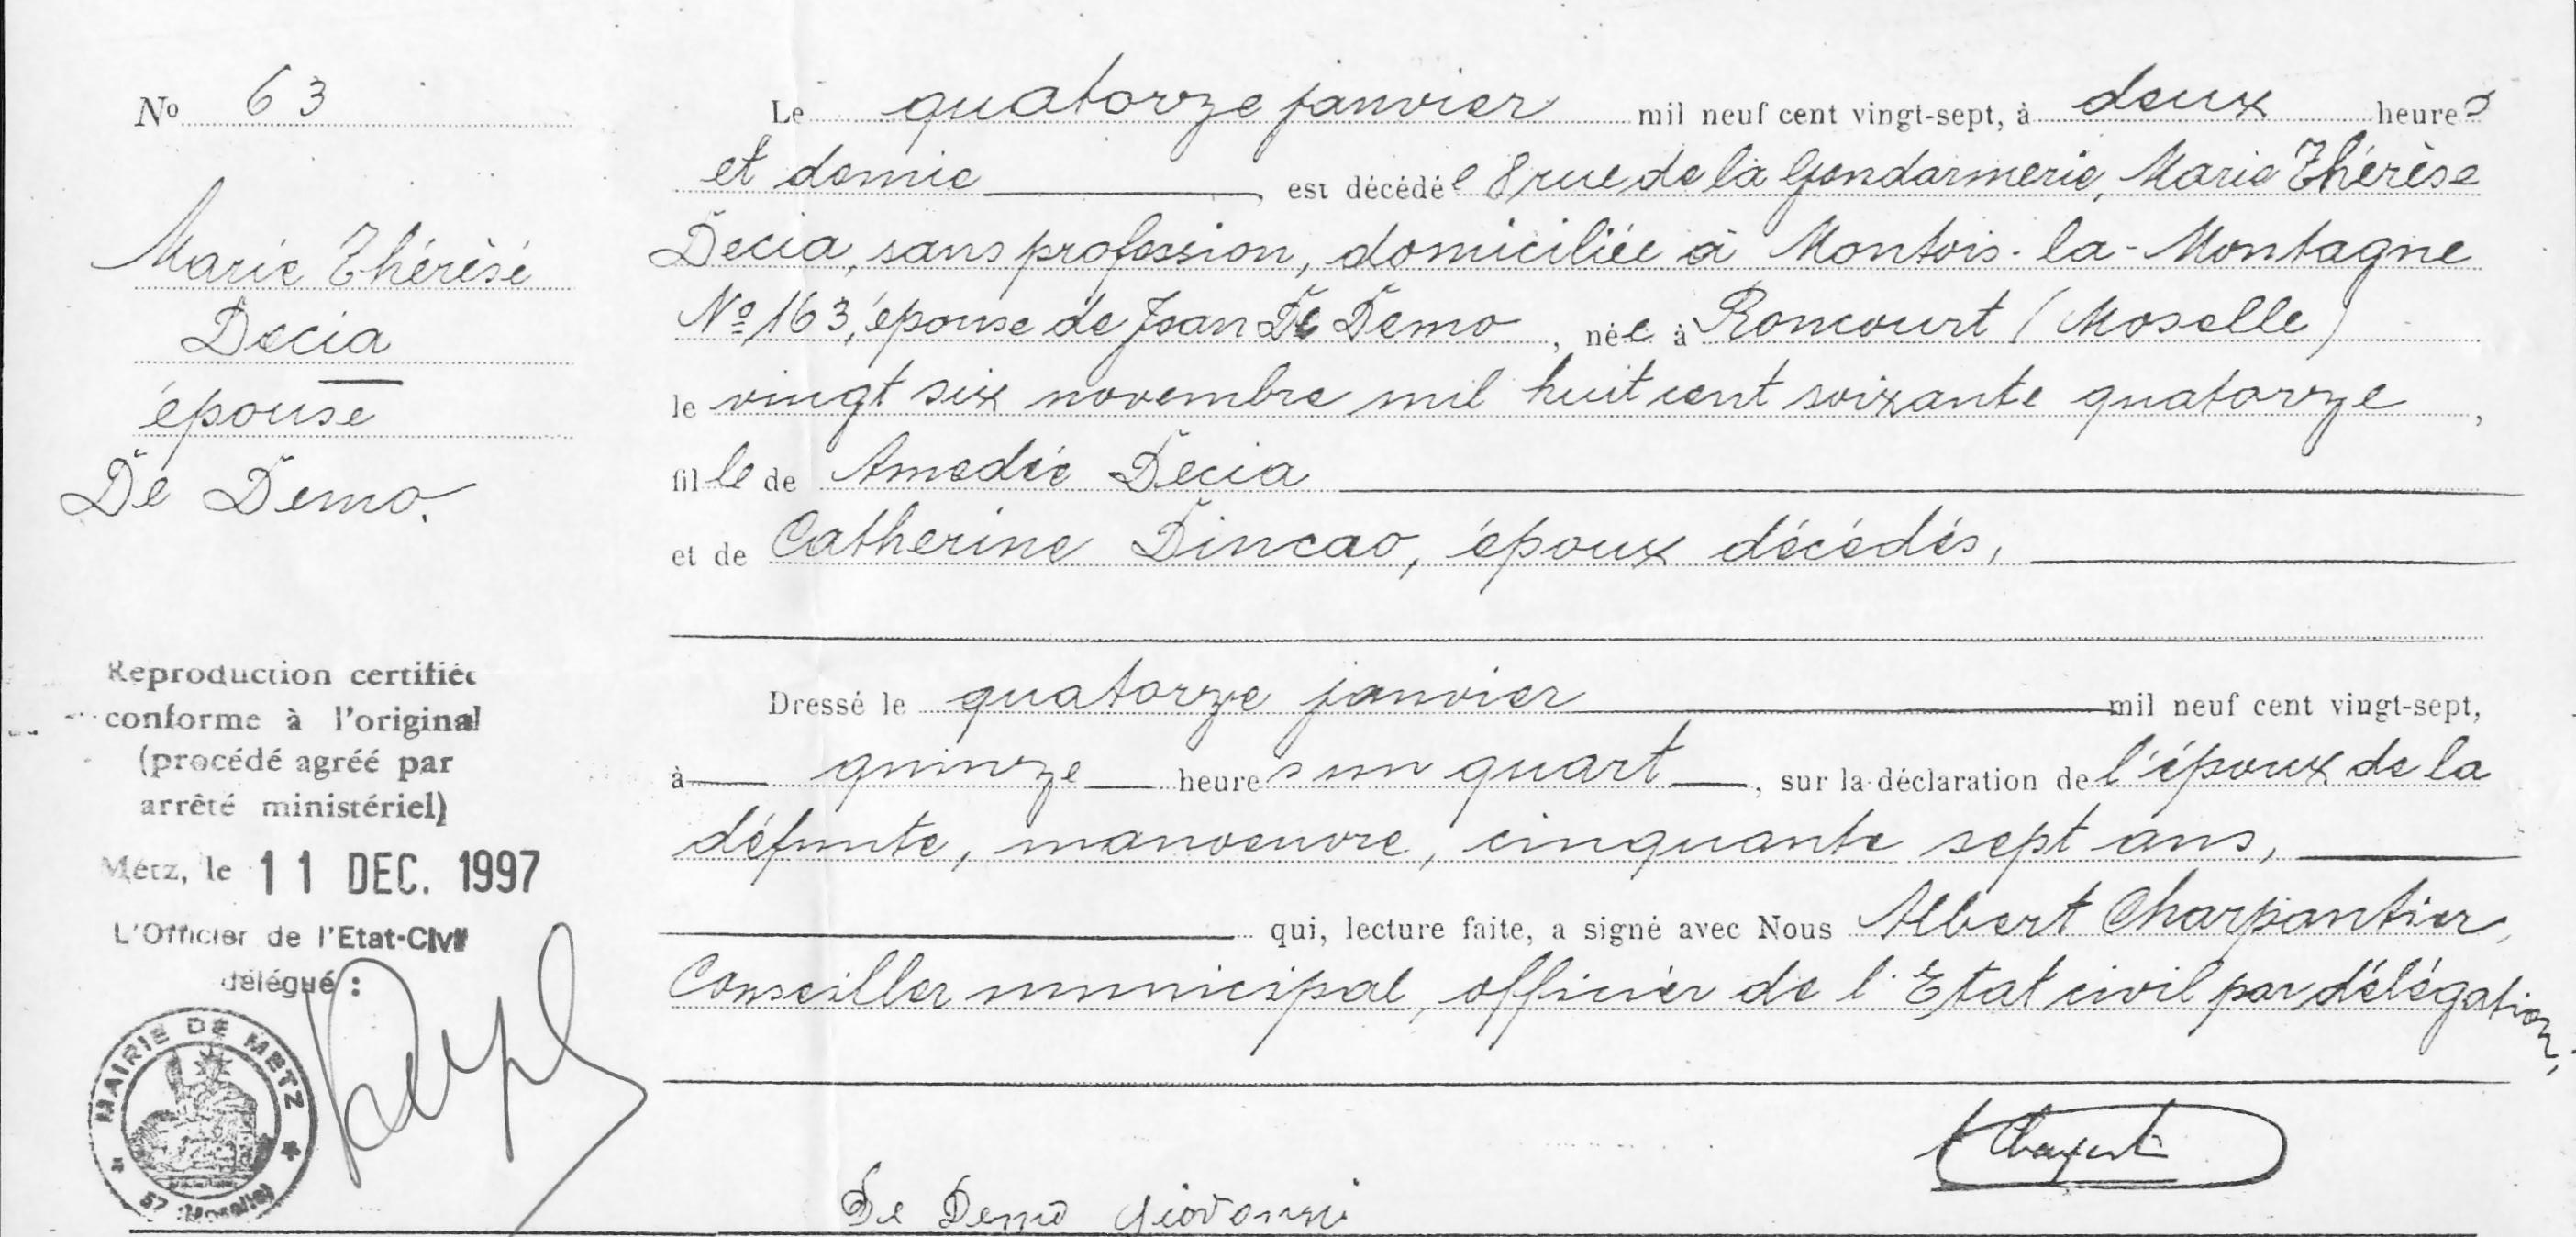 No 63
Marie Thérèse
Decia
épouse
De Demo.
Le quatorze janvier mil neuf cent vingt-sept, à deux heures
et demie, est décédée 8 rue de la Gendarmerie, Marie Thérèse
Decia, sans profession, domiciliée à Montois-la-Montagne
No 163, épouse de Jean De Demo, née à Roncourt (Moselle)
le vingt six novembre mil huit cent soixante quatorze,
fille de Amedée Decia
et de Catherine Dincao, époux décédés,
Dressé le quatorze janvier mil neuf cent vingt-sept,
à quinze heures un quart, sur la déclaration de l'époux de la
défunte, manoeuvre, cinquante sept ans,
qui, lecture faite, a signé avec Nous Albert Charpantier,
Conseiller municipal, officier de l'Etat civil par délégation,
Reproduction certifiée
conforme à l'original
(procédé agréé par
arrêté ministériel)
Metz, le 11 DEC. 1997
L'Officier de l'Etat-Civil
délégué :
MAIRIE DE METZ
57 (Moselle)
De Demo Giovanni